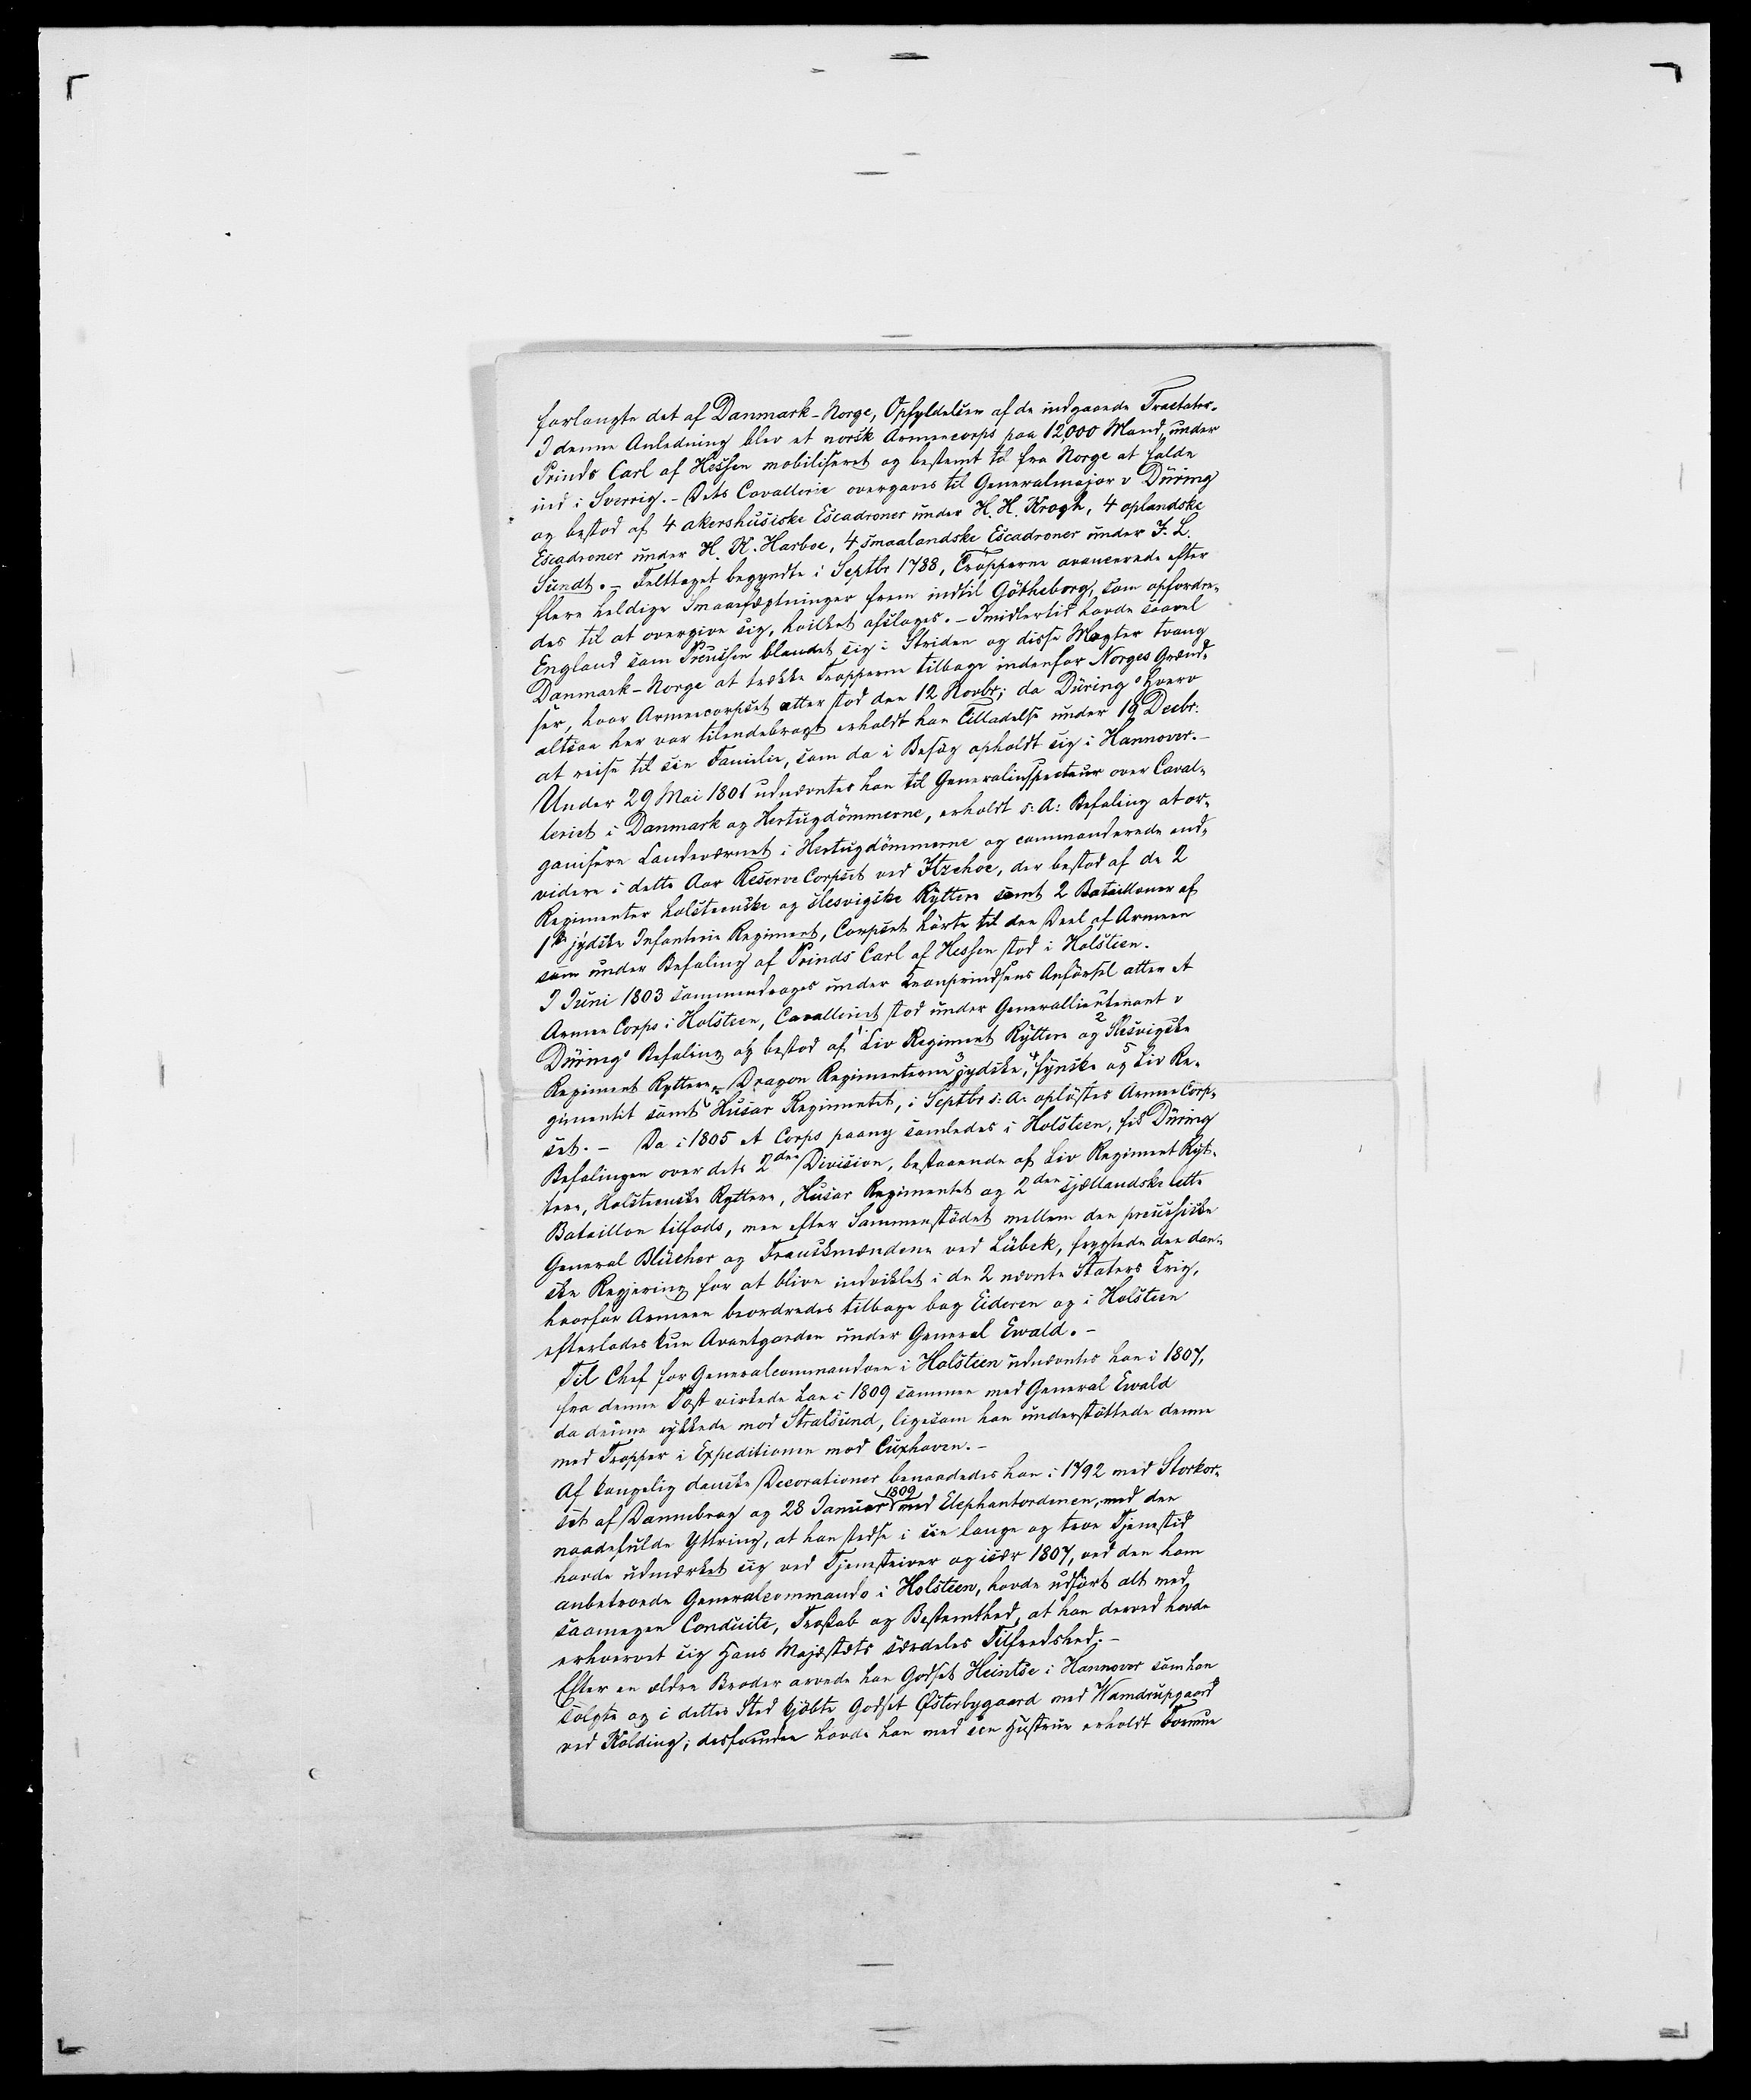 forlangte det af Danmark-Norge, Opfyldelsen af de indgaaede Tractater.
I denne Anledning blev et norsk Armeecorps paa 12,000 Mand, under
Prinds Carl af Hessen mobiliseret og bestemt til fra Norge at falde
ind i Sverrig. - Dets Cavallerie overgaves til Generalmajor v Düring
og bestod af 4 akershusiske Escadroner under H. H. Krogh, 4 oplandske
Escadroner under H. K. Harboe, 4 smaalandske Escadroner under F. L.
Sundt. - Felttoget begyndte i Septbr 1788, Tropperne avancerede efter
flere heldige Smaafægtninger frem indtil Götheborg, som opfordre-
des til at overgive sig, hvilket afsloges. - Imidlertid havde saavel
England som Preussen blandet sig i Striden og disse Magter tvang
Danmark-Norge at trække Tropperne tilbage indenfor Norges Grænd-
ser, hvor Armeecorpset atter stod den 12 Novbr; da Dürings Hverv
altsaa her var tilendebragt erholdt han Tilladelse under 19 Decbr:
at reise til sin Familie, som da i Besøg opholdt sig i Hannover. -
Under 29 Mai 1801 udnævntes han til Generalinspecteur over Caval-
leriet i Danmark og Hertugdömmerne, erholdt s: A: Befaling at or-
ganisere Landeværnet i Hertugdömmerne og commanderede end-
videre i dette Aar ReserveCorpset ved Itzehoe, der bestod af de 2
Regimenter holsteenske og slesvigske Ryttere samt 2 Batailloner af
1ste jydske Infanterie Regiment, Corpset hörte til den Deel af Armeen
som under Befaling af Prinds Carl af Hessen stod i Holsteen.
I Juni 1803 sammendroges under Kronprindsens Anförsel atter et
Armee Corps i Holsteen, Cavalleriet stod under Generallieutenant v
Dürings Befaling og bestod af 1 Liv Regiment Ryttere og 2 Slesvigske
Regiment Ryttere, Dragon Regimenterne 3 jydske, 4 fynske og 5 Liv Re-
gimentet samt 6 Husar Regimentet, i Septbr s: A: oplöstes Armee Corp-
set. - Da i 1805 et Corps paany samledes i Holsteen, fik Düring
Befalingen over dets 2den Division, bestaaende af Liv Regiment Ryt-
tere, Holsteenske Ryttere, Husar Regimentet og 2den sjællandske lette
Bataillon tilfods, men efter Sammenstödet mellem den preussiske
General Blücher og Franskmændene ved Lübek, frygtede den dan-
ske Regjering for at blive indviklet i de 2 nævnte Staters Krig,
hvorfor Armeen beordredes tilbage bag Eideren og i Holsteen
efterlodes kun Avantgarden under General Ewald. -
Til Chef for Generalcommandoen i Holsteen udnævntes han i 1807,
fra denne Post virkede han i 1809 sammen med General Ewald
da denne rykkede mod Stralsund, ligesom han understöttede denne
med Tropper i Expeditionen mod Cuxhaven. -
Af kongelig danske Decorationer benaadedes han i 1792 med Storkor-
set af Dannebrog og 28 Januar 1809 med Elephantordenen, med den
naadefulde Yttring, at han stedse i sin lange og troe Tjenestid
havde udmærket sig ved Tjenesteiver og især 1807, ved den ham
anbetroede Generalcommando i Holsteen, havde udfört alt med
saamegen Conduite, Troskab og Bestemthed, at han derved havde
erhvervet sig Hans Majestæts særdeles Tilfredshed. -
Efter en ældre Broder arvede han Godset Heintse i Hannover som han
solgte og i dettes Sted kjöbte Godset Østerbygaard med Wamdrupgaard
ved Kolding; desforuden havde han med sin Hustrue erholdt